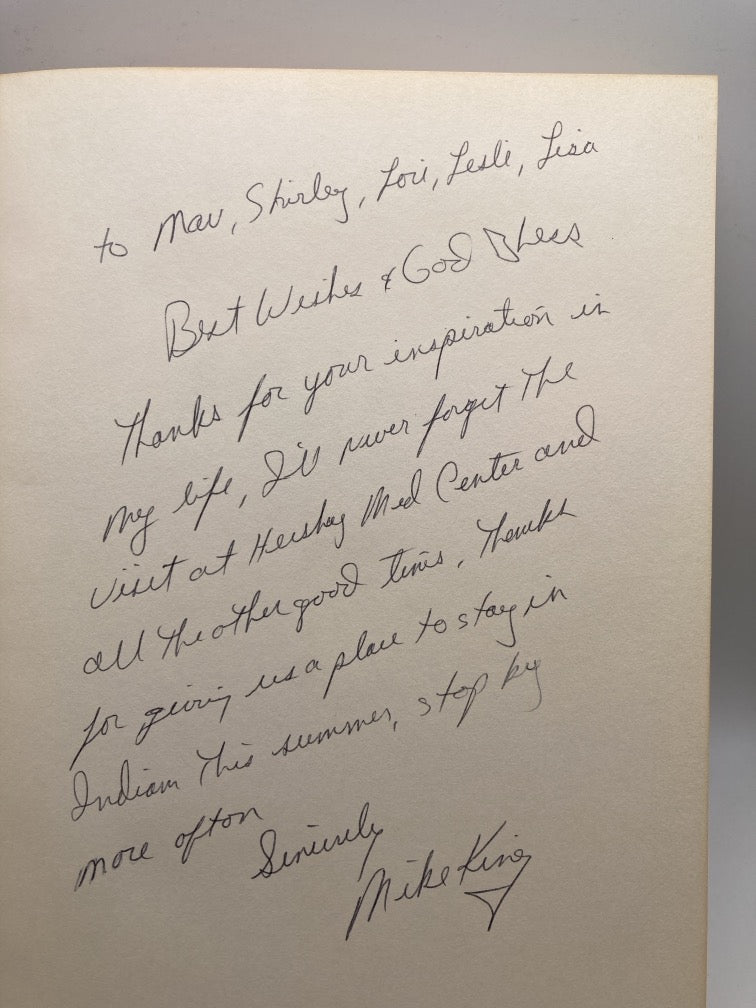 to Mav, Shirley, Lori, Lesli, Lisa
Best Wishes & God Bless
Thanks for your inspiration in
my life, I'll never forget the
visit at Hershey Med Center and
all the other good times, Thanks
for giving us a place to stay in
Indiana this summer, stop by
more often
Sincerely
Mike King